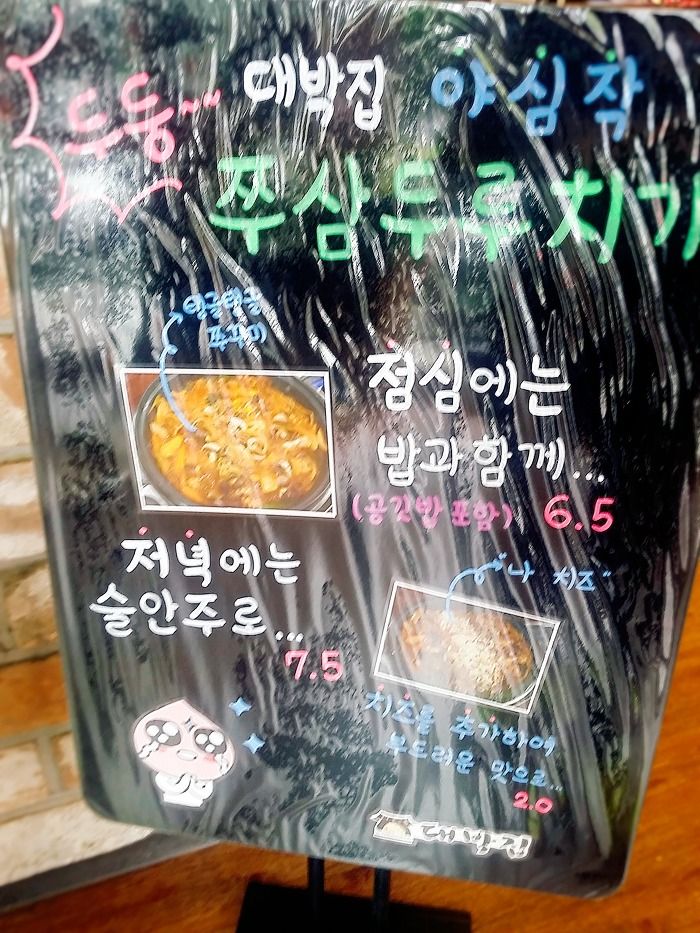 두둥~~
대박집 야심작
쭈삼두루치기
탱글탱글
쭈꾸미
점심에는
밥과함께...
(공깃밥 포함) 6.5
저녁에는
술안주로...
7.5
"나 치즈"
치즈를 추가하여
부드러운 맛으로...
2.0
대박집